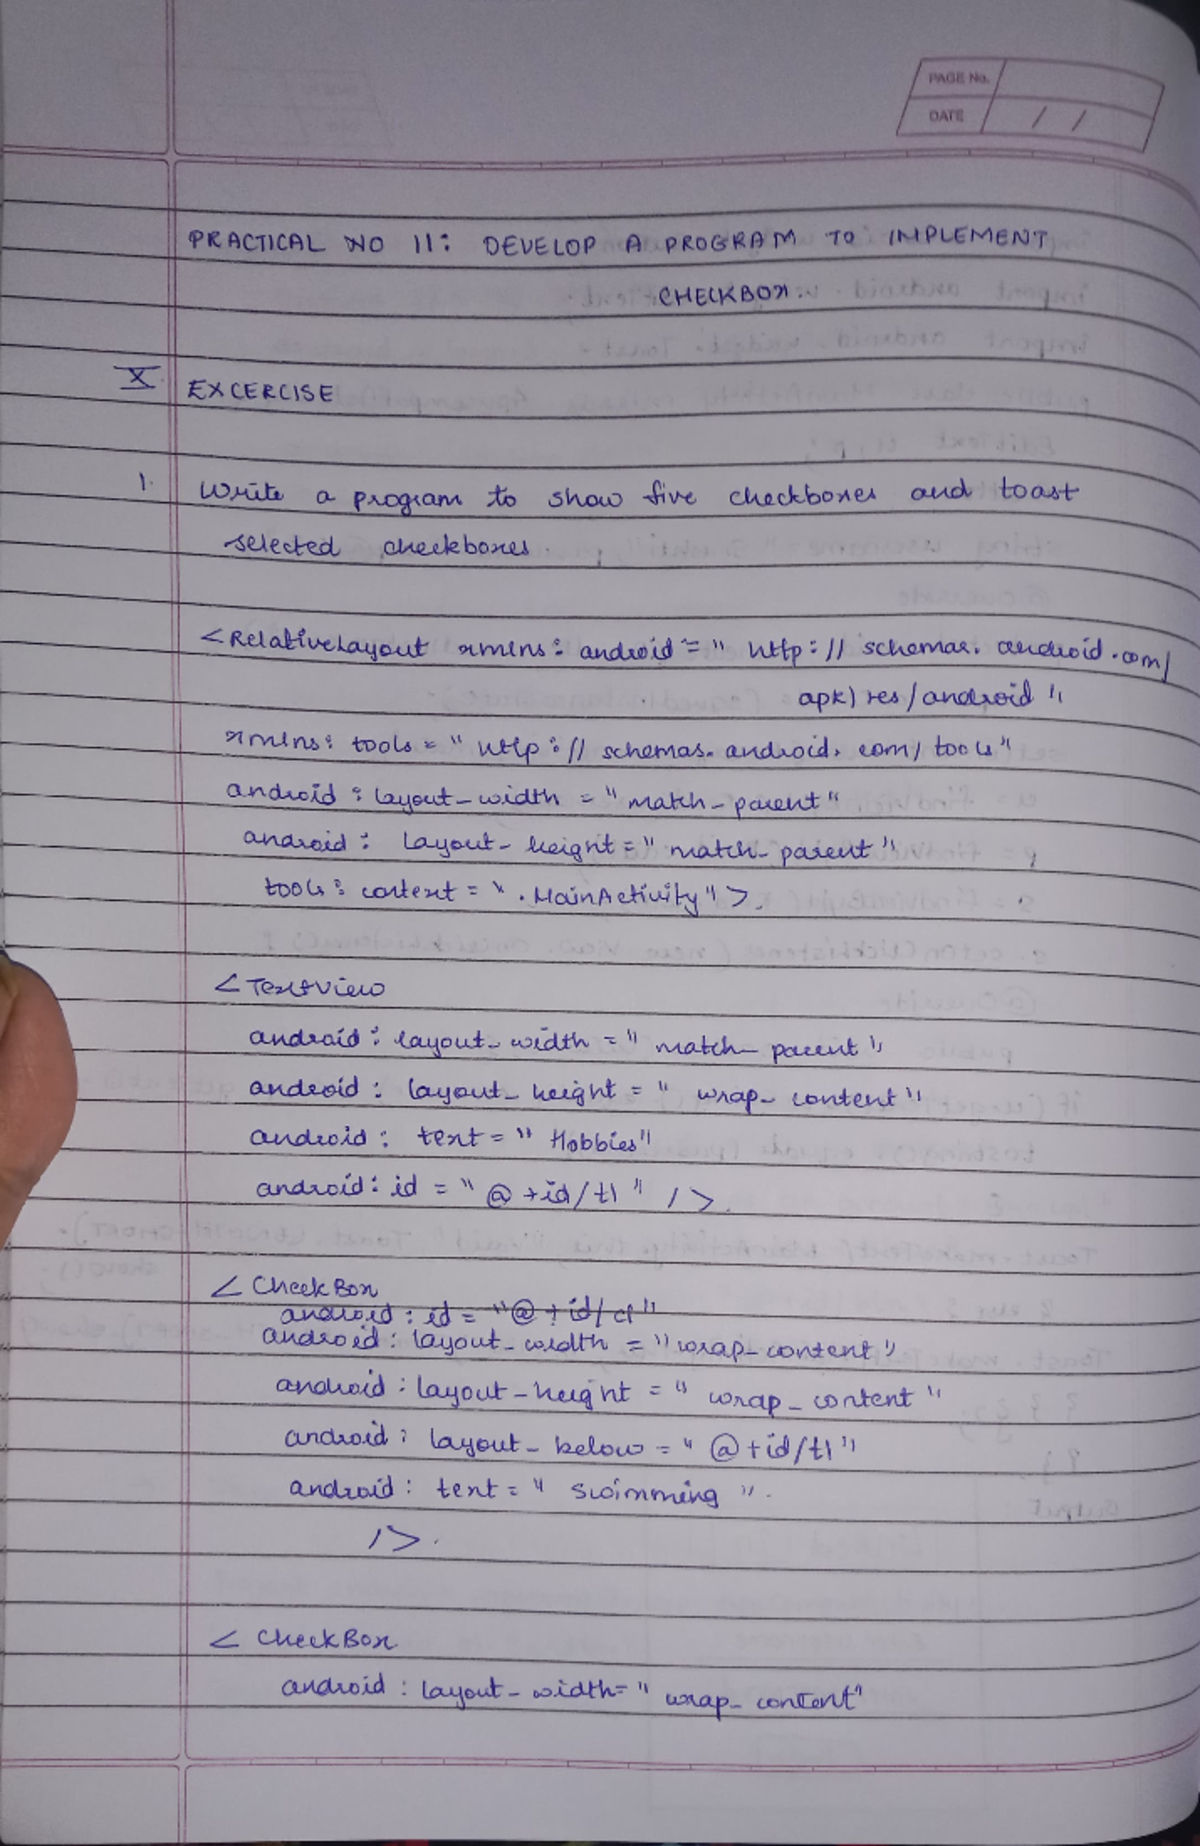 PAGE No.
DATE / /
PRACTICAL NO 11: DEVELOP A PROGRAM TO IMPLEMENT
CHECKBOX.
X EXCERCISE
1. Write a program to show five checkboxes and toast
selected checkboxes.
<RelativeLayout xmlns: android = "http://schemas.android.com/
apk)res/android"
xmlns: tools = "http://schemas.android.com/tools"
android: layout_width = "match_parent"
android: layout_height = "match_parent"
tools: context = ".MainActivity">.
<TextView
android: layout_width = "match_parent"
android: layout_height = "wrap_content"
android: text = "Hobbies"
android: id = "@+id/t1" />.
<CheckBox
android: id = "@+id/c1"
android: layout_width = "wrap_content"
android: layout_height = "wrap_content"
android: layout_below = "@+id/t1"
android: text = "Swimming".
/>.
<CheckBox
android: layout_width= "wrap_content"